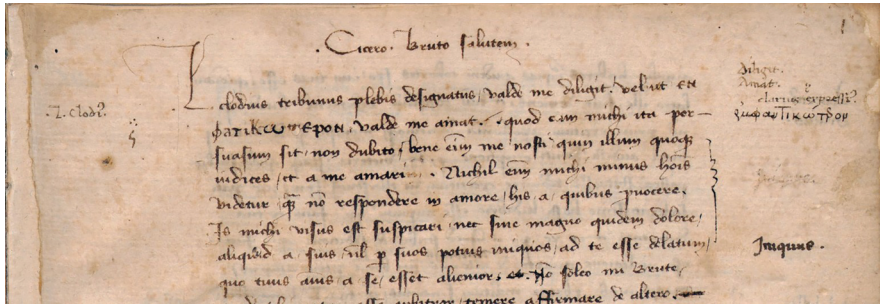 Cicero. Bruto salutem.
L clodius tribunus plebis designatus, valde me diligit. vel ut εн
φατικωτεροн, valde me amat. quod cum michi ita per-
suasum sit, non dubito, bene enī me nosti quin illum quoque
iudices, et a me amari. Nichil enī michi minus hoīs
videtur quā nō respondere in amore, his, a, quibus provocere.
Is michi visus est suspicari, nec sine magno quidem dolore,
aliquid a, suis, ul p suos potius iniquos, ad te esse delatum,
quo tuus aīus a se, esset alienior. Nō soleo mi Brute,
temere affirmare de altero.
L. Clodi9
diligit.
Amat.
ἐμφατικώτερον
Iniquus.